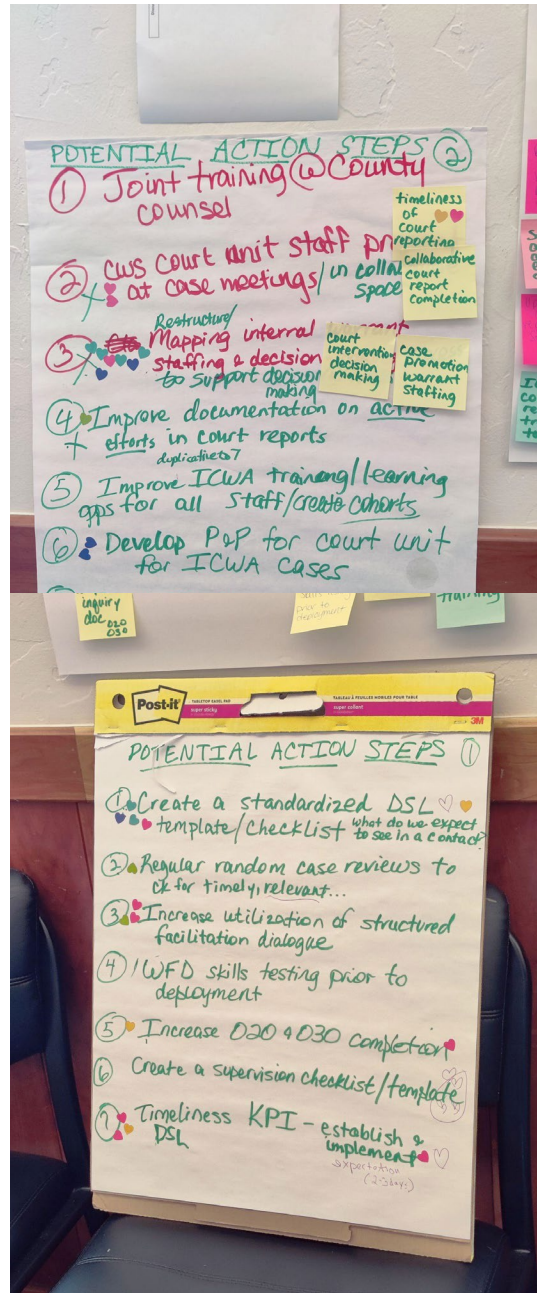 POTENTIAL ACTION STEPS 2
1 Joint training @ County
counsel
timeliness
of
court
reporting
2 CWS court unit staff pr
at case meetings/in colla
space
collaborative
court
report
completion
Restructure/
3 Mapping internal
staffing & decision
to support decision
making
court
intervention
decision
making
case
promotion
warrant
staffing
4 Improve documentation on active
efforts in court reports
duplicative to 7
5 Improve ICWA training/learning
opps for all staff/create cohorts
6 Develop P&P for court unit
for ICWA cases
inquiry
doc 020
030
prior to
deployment
training
Post-it
TABLETOP EASEL PAD
super sticky
TABLEAU À FEUILLES MOBILES POUR TABLE
super collant
3M
POTENTIAL ACTION STEPS 1
1 Create a standardized DSL
template/checklist what do we expect
to see in a contact?
2 Regular random case reviews to
ck for timely, relevant...
3 Increase utilization of structured
facilitation dialogue
4 IWFD skills testing prior to
deployment
5 Increase 020 & 030 completion
6 Create a supervision checklist/template
7 Timeliness KPI - establish &
DSL implement
expectation
(2-3 days)